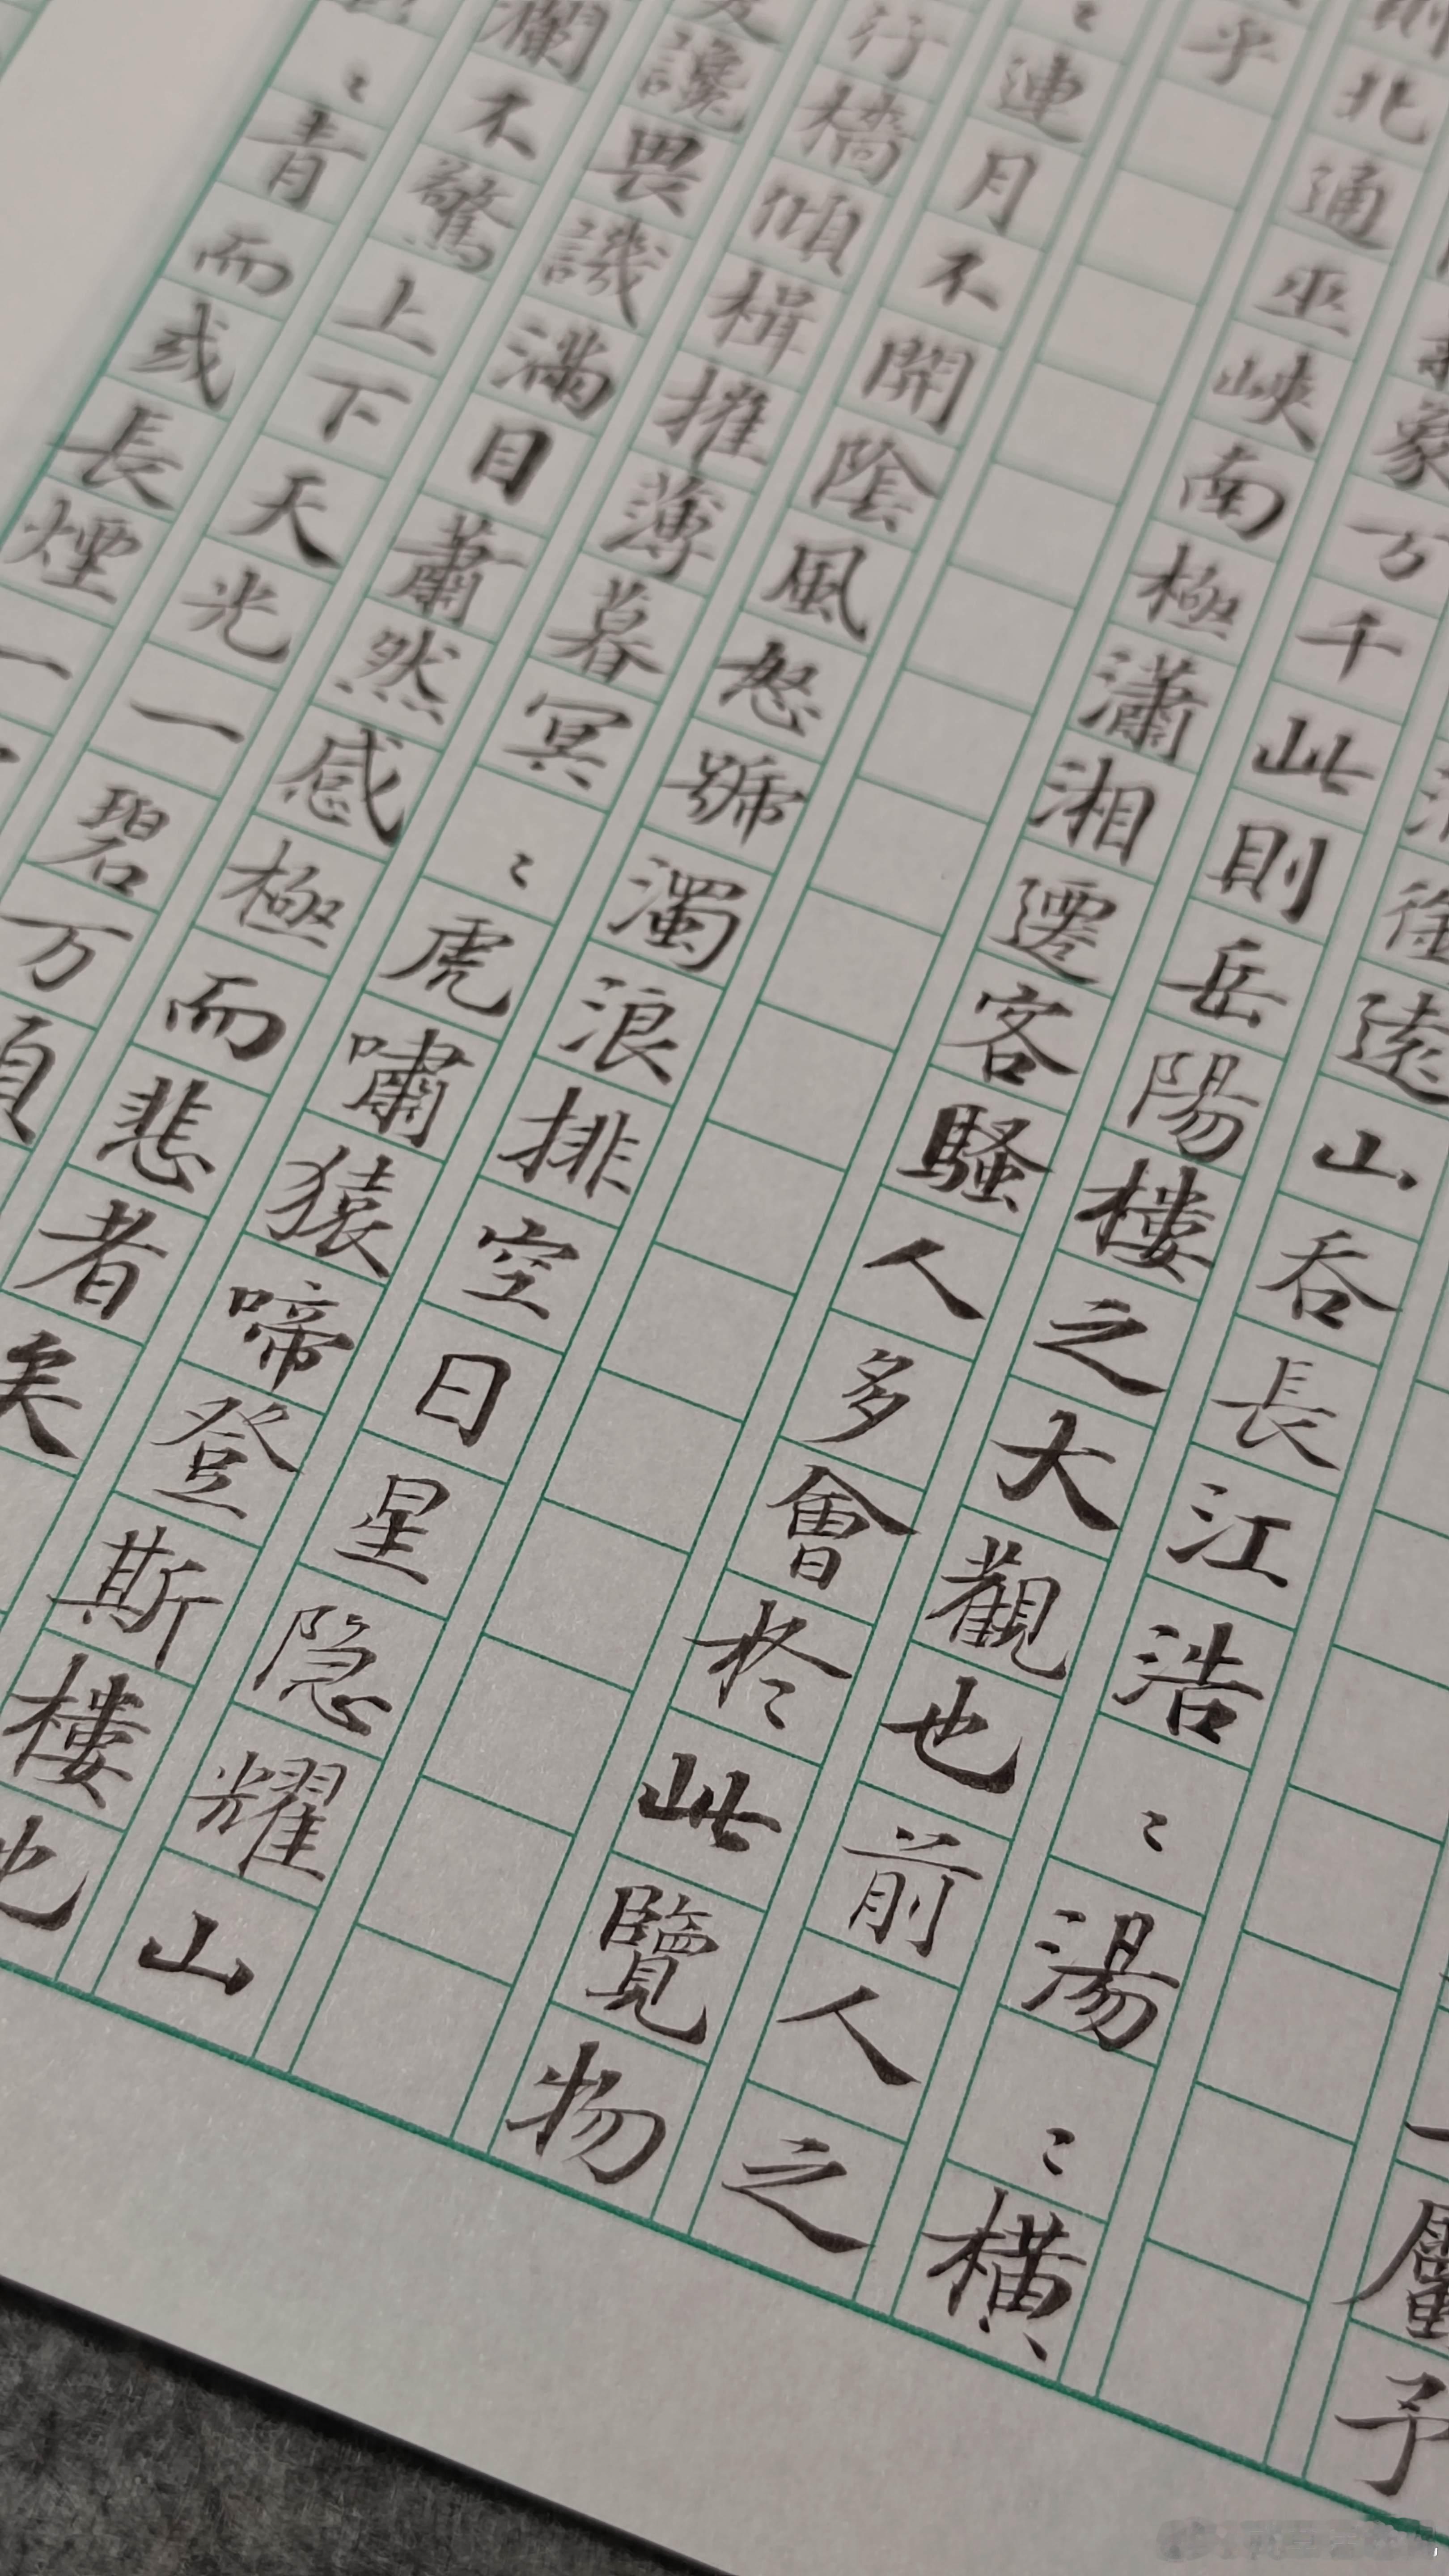 屬予
遠山吞長江浩〻湯〻橫
象万千此則岳陽樓之大觀也前人之
則北通巫峽南極瀟湘遷客騷人多會於此覽物
乎
〻連月不開陰風怒號濁浪排空日星隐耀山
行檣傾楫摧薄暮冥〻虎嘯猿啼登斯樓也
讒畏譏滿目蕭然感極而悲者矣
瀾不驚上下天光一碧万頃
〻青而或長煙一